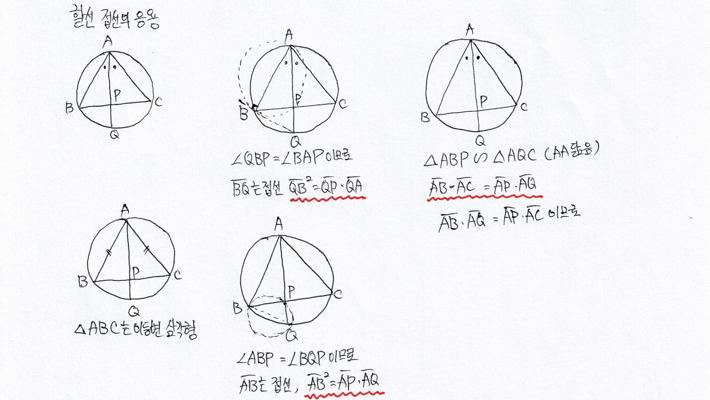 할선 접선의 응용
A
B
P
C
Q
A
B
P
C
Q
∠QBP = ∠BAP 이므로
B̅Q̅는 접선 Q̅B̅² = Q̅P̅·Q̅A̅
A
B
P
C
Q
△ABP ∽ △AQC (AA닮음)
A̅B̅·A̅C̅ = A̅P̅·A̅Q̅
A̅B̅·A̅Q̅ = A̅P̅·A̅C̅ 이므로
A
B
P
C
Q
△ABC는 이등변 삼각형
A
B
P
C
Q
∠ABP = ∠BQP 이므로
A̅B̅는 접선, A̅B̅² = A̅P̅·A̅Q̅